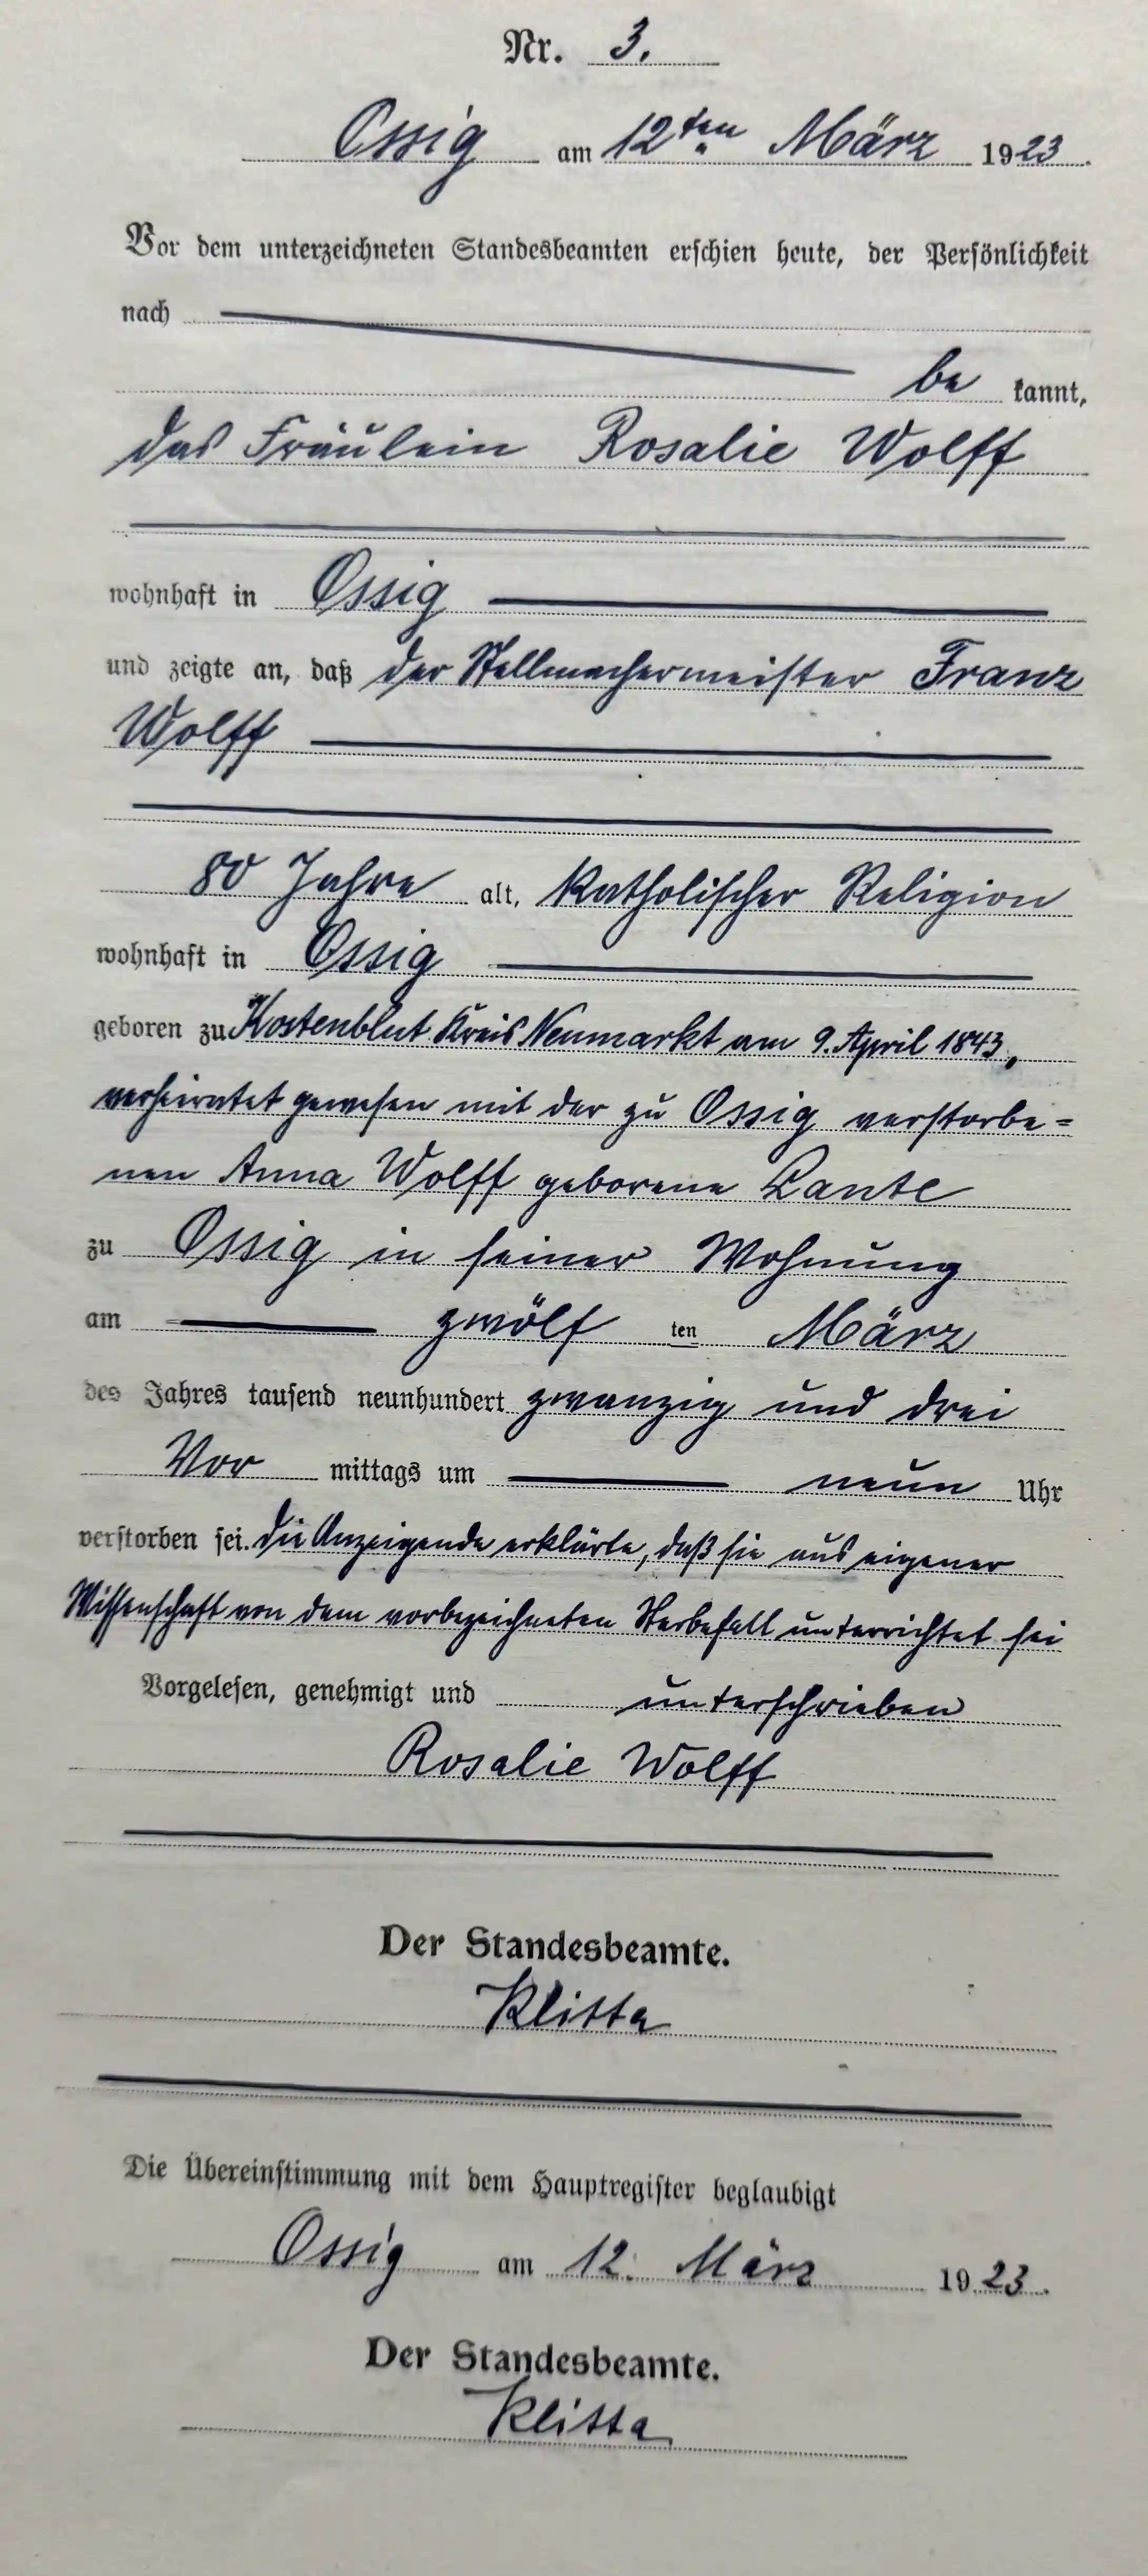 Nr. 3.
Ossig am 12ten März 1923.
Vor dem unterzeichneten Standesbeamten erschien heute, der Persönlichkeit
nach
be kannt,
das Fräulein Rosalie Wolff
wohnhaft in Ossig
und zeigte an, daß der Stellmachermeister Franz
Wolff
80 Jahre alt, katholischer Religion
wohnhaft in Ossig
geboren zu Kostenblut Kreis Neumarkt am 9. April 1843,
verheiratet gewesen mit der zu Ossig verstorbe=
nen Anna Wolff geborene Lante
zu Ossig in seiner Wohnung
am zwölf ten März
des Jahres tausend neunhundert zwanzig und drei
Vor mittags um neun Uhr
verstorben sei. Die Anzeigende erklärte, daß sie aus eigener
Wissenschaft von dem vorbezeichneten Sterbefall unterrichtet sei
Vorgelesen, genehmigt und unterschrieben
Rosalie Wolff
Der Standesbeamte.
Klitta
Die Übereinstimmung mit dem Hauptregister beglaubigt
Ossig am 12. März 1923.
Der Standesbeamte.
Klitta